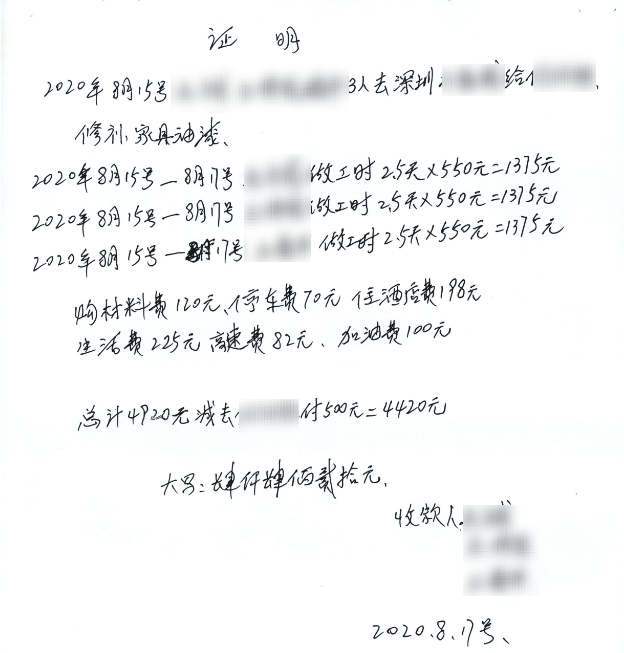 证 明
2020年8月15号 3人去深圳 给
修补家具油漆、
2020年8月15号—8月17号 做工时2.5天×550元=1375元
2020年8月15号—8月17号 做工时2.5天×550元=1375元
2020年8月15号—8月17号 做工时2.5天×550元=1375元
购材料费120元、停车费70元 住酒店费198元
生活费225元 高速费82元、加油费100元
总计4920元 减去 付500元=4420元
大写:肆仟肆佰贰拾元、
收款人
2020.8.17号、